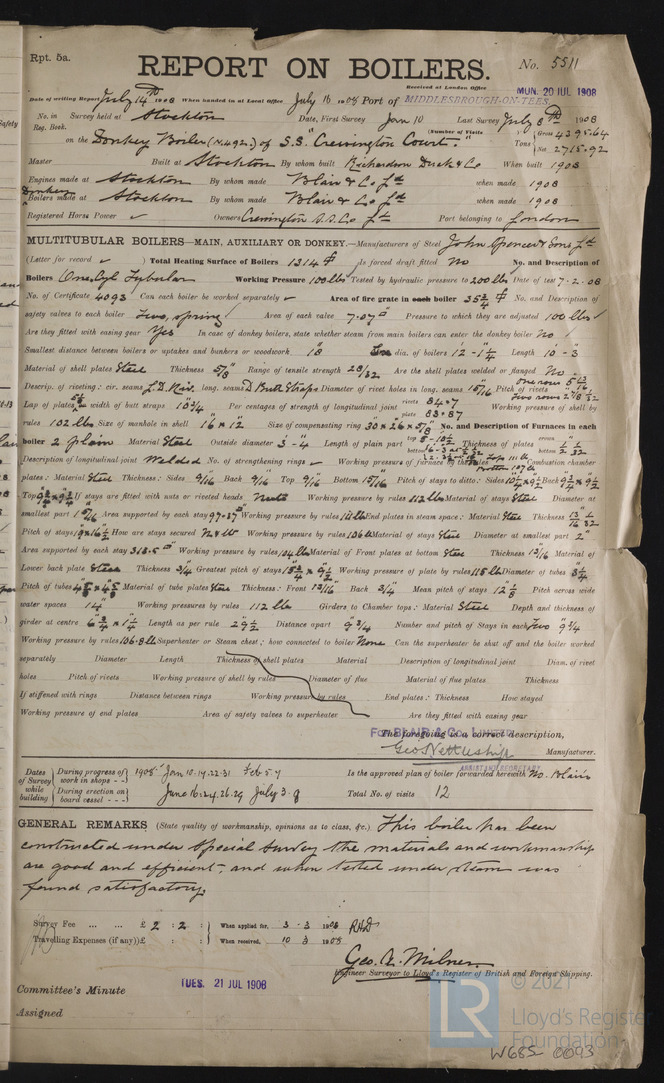 Rpt. 5a.
REPORT ON BOILERS.
No. 5511
Received at London Office
MUN. 20 JUL 1908
Date of writing Report July 14th 1908 When handed in at Local Office July 16 1908 Port of MIDDLESBROUGH-ON-TEES
No. in Survey held at Stockton Date, First Survey Jan 10 Last Survey July 8th 1908
Reg. Book. (Number of Visits
on the Donkey Boiler (No 492) of S.S. "Crewington Court." Tons { Gross 4395.64
Net 2715.92
Master Built at Stockton By whom built Richardson Duck & Co When built 1908
Engines made at Stockton By whom made Blair & Co Ld when made 1908
Donkey
Boilers made at Stockton By whom made Blair & Co Ld when made 1908
Registered Horse Power Owners Crewington S.S. Co Ld Port belonging to London
MULTITUBULAR BOILERS—MAIN, AUXILIARY OR DONKEY.—Manufacturers of Steel John Spencer & Sons Ld
(Letter for record ✓ ) Total Heating Surface of Boilers 1314 Is forced draft fitted No No. and Description of
Boilers One Cyl Tubular Working Pressure 100 lbs Tested by hydraulic pressure to 200 lbs Date of test 7.2.08
No. of Certificate 4093 Can each boiler be worked separately ✓ Area of fire grate in each boiler 35 3/4 No. and Description of
safety valves to each boiler Two, spring Area of each valve 7.07" Pressure to which they are adjusted 100 lbs
Are they fitted with easing gear Yes In case of donkey boilers, state whether steam from main boilers can enter the donkey boiler No
Smallest distance between boilers or uptakes and bunkers or woodwork 18" dia. of boilers 12'-1 1/4 Length 10'-3
Material of shell plates Steel Thickness 5/8" Range of tensile strength 28/32 Are the shell plates welded or flanged No
Descrip. of riveting: cir. seams L.D. Riv. long. seams D. Butt Straps Diameter of rivet holes in long. seams 15/16 Pitch of rivets
Lap of plates or width of butt straps 10 3/4 Per centages of strength of longitudinal joint rivets 84.7 Working pressure of shell by
plate 83.87
rules 102 lbs Size of manhole in shell 16" x 12 Size of compensating ring 30 x 26 x 5/8" No. and Description of Furnaces in each
boiler 2 plain Material Steel Outside diameter 3'-4 Length of plain part top Thickness of plates crown 1/2 / 32
bottom bottom
Description of longitudinal joint Welded No. of strengthening rings ✓ Working pressure of furnace by the rules Top 111 lb Combustion chamber
Bottom 107 lb
plates: Material Steel Thickness: Sides 9/16 Back 9/16 Top 9/16 Bottom 15/16 Pitch of stays to ditto: Sides Back
Top If stays are fitted with nuts or riveted heads Nuts Working pressure by rules 112 lbs Material of stays Steel Diameter at
smallest part Area supported by each stay 97.37 Working pressure by rules End plates in steam space: Material Steel Thickness
Pitch of stays How are stays secured Working pressure by rules Material of stays Steel Diameter at smallest part 2"
Area supported by each stay 318.5 Working pressure by rules Material of Front plates at bottom Steel Thickness 13/16 Material of
Lower back plate Steel Thickness 3/4 Greatest pitch of stays Working pressure of plate by rules 115 lb Diameter of tubes 3 1/4
Pitch of tubes Material of tube plates Steel Thickness: Front 13/16 Back 3/4 Mean pitch of stays Pitch across wide
water spaces 14" Working pressures by rules 112 lbs Girders to Chamber tops: Material Steel Depth and thickness of
girder at centre 6 3/4 x 1 1/4 Length as per rule 29 1/2 Distance apart 9 3/4 Number and pitch of Stays in each Two 9 3/4
Working pressure by rules 106.8 lb Superheater or Steam chest; how connected to boiler None Can the superheater be shut off and the boiler worked
separately Diameter Length Thickness of shell plates Material Description of longitudinal joint Diam. of rivet
holes Pitch of rivets Working pressure of shell by rules Diameter of flue Material of flue plates Thickness
If stiffened with rings Distance between rings Working pressure by rules End plates: Thickness How stayed
Working pressure of end plates Area of safety valves to superheater Are they fitted with easing gear
For BLAIR & Co. LIMITED
The foregoing is a correct description,
Geo Nettleship Manufacturer.
ASSISTANT SECRETARY
Dates of Survey while building
During progress of work in shops - - 1908: Jan 10.17.22.31 Feb 5.7
During erection on board vessel - - - June 16.24.26.29 July 3.8
Is the approved plan of boiler forwarded herewith No. Blair's
Total No. of visits 12
GENERAL REMARKS (State quality of workmanship, opinions as to class, &c.) This boiler has been
constructed under special survey the materials and workmanship
are good and efficient, and when tested under steam was
found satisfactory.
Survey Fee ... ... £ 2 : 2 : When applied for, 3.3.1908 RHD
Travelling Expenses (if any) £ : : When received, 10.3.1908
Geo. A. Milner
Engineer Surveyor to Lloyd's Register of British and Foreign Shipping.
Committee's Minute TUES. 21 JUL 1908
Assigned
LR
© 2021
Lloyd's Register
Foundation
W685-0093